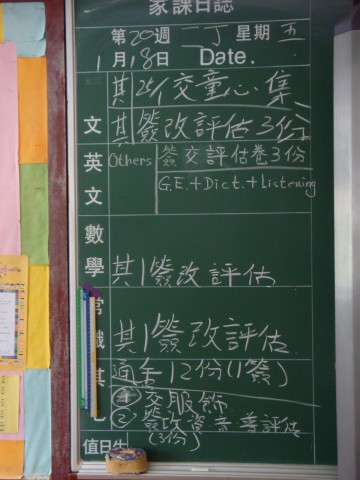 家課日誌
第20週 二丁 星期 五
1月18日 Date.
其 25/1交童心集
文 其 簽改評估3份
英文 Others 簽交評估卷3份
G.E.+Dict.+Listening
數學 其1簽改評估
常識 其1簽改評估
其 通告12份(1簽)
① 交服飾
② 簽改營養評估
(3份)
值日生